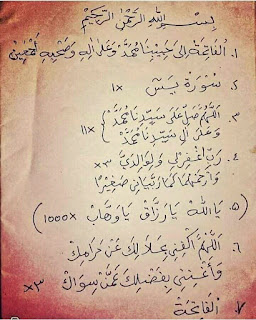 بِسْمِ اللهِ الرَّحْمٰنِ الرَّحِيْمِ
١. الْفَاتِحَةِ إِلَى حَبِيْبِنَا مُحَمَّدٍ وَعَلَى اٰلِهِ وَصَحْبِهِ أَجْمَعِيْنَ
٢. سُوْرَةْ يٰسٓ ×١
٣. اَللّٰهُمَّ صَلِّ عَلَى سَيِّدِنَا مُحَمَّدْ
وَعَلَى اٰلِ سَيِّدِنَا مُحَمَّدْ } ×١١
٤. رَبِّ اغْفِرْلِيْ وَلِوَالِدَيَّ ×٣
وَارْحَمْهُمَا كَمَا رَبَّيَانِيْ صَغِيْرًا
(٥. يَا اَللهْ يَا رَزَّاقْ يَا وَهَّابْ ×1000)
٦. اَللّٰهُمَّ اكْفِنِيْ بِحَلَالِكَ عَنْ حَرَامِكَ
وَأَغْنِنِيْ بِفَضْلِكَ عَمَّنْ سِوَاكَ ×٣
٧. اَلْفَاتِحَةْ